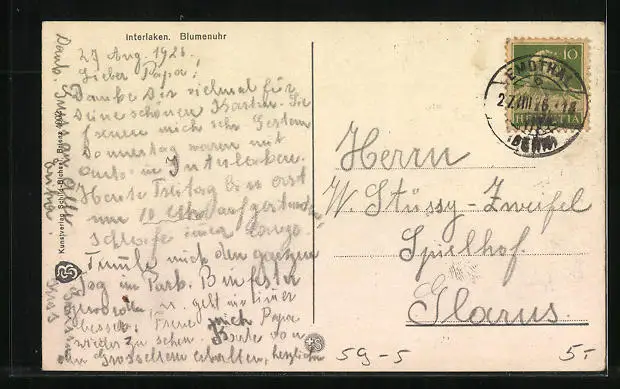 Interlaken. Blumenuhr
27 Aug. 1926.
Lieber Papa!
Danke Dir vielmal für
Deine schönen Karten. Sie
freuen mich sehr. Gestern
Donnerstag waren mit
Auto in Interlaken.
Heute Freitag bin erst
um 10 Uhr aufgestanden,
schlafe immer lange.
Tumle mich den ganzen
Tag im Park. Bin fester
geworden, u. geht mir immer
besser. Freue mich Papa
wieder zu sehen. Karte von
den Grosseltern erhalten, herzliche
Kunstverlag
EMDTHAL
27.VIII.26.-18
(BERN)
10
HELVETIA
Herrn
W. Stüssy-Zweifel
Spielhof
Glarus.
59-5
5-